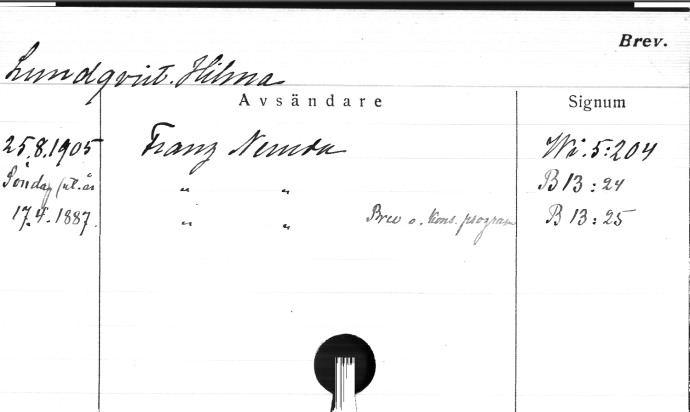 Brev.
Lundqvist. Hilma
Avsändare Signum
25.8.1905 Franz Neruda Wi. 5:204
Söndag (ut. år " " B 13:24
17.4.1887. " " Brev o. kons. program B 13:25